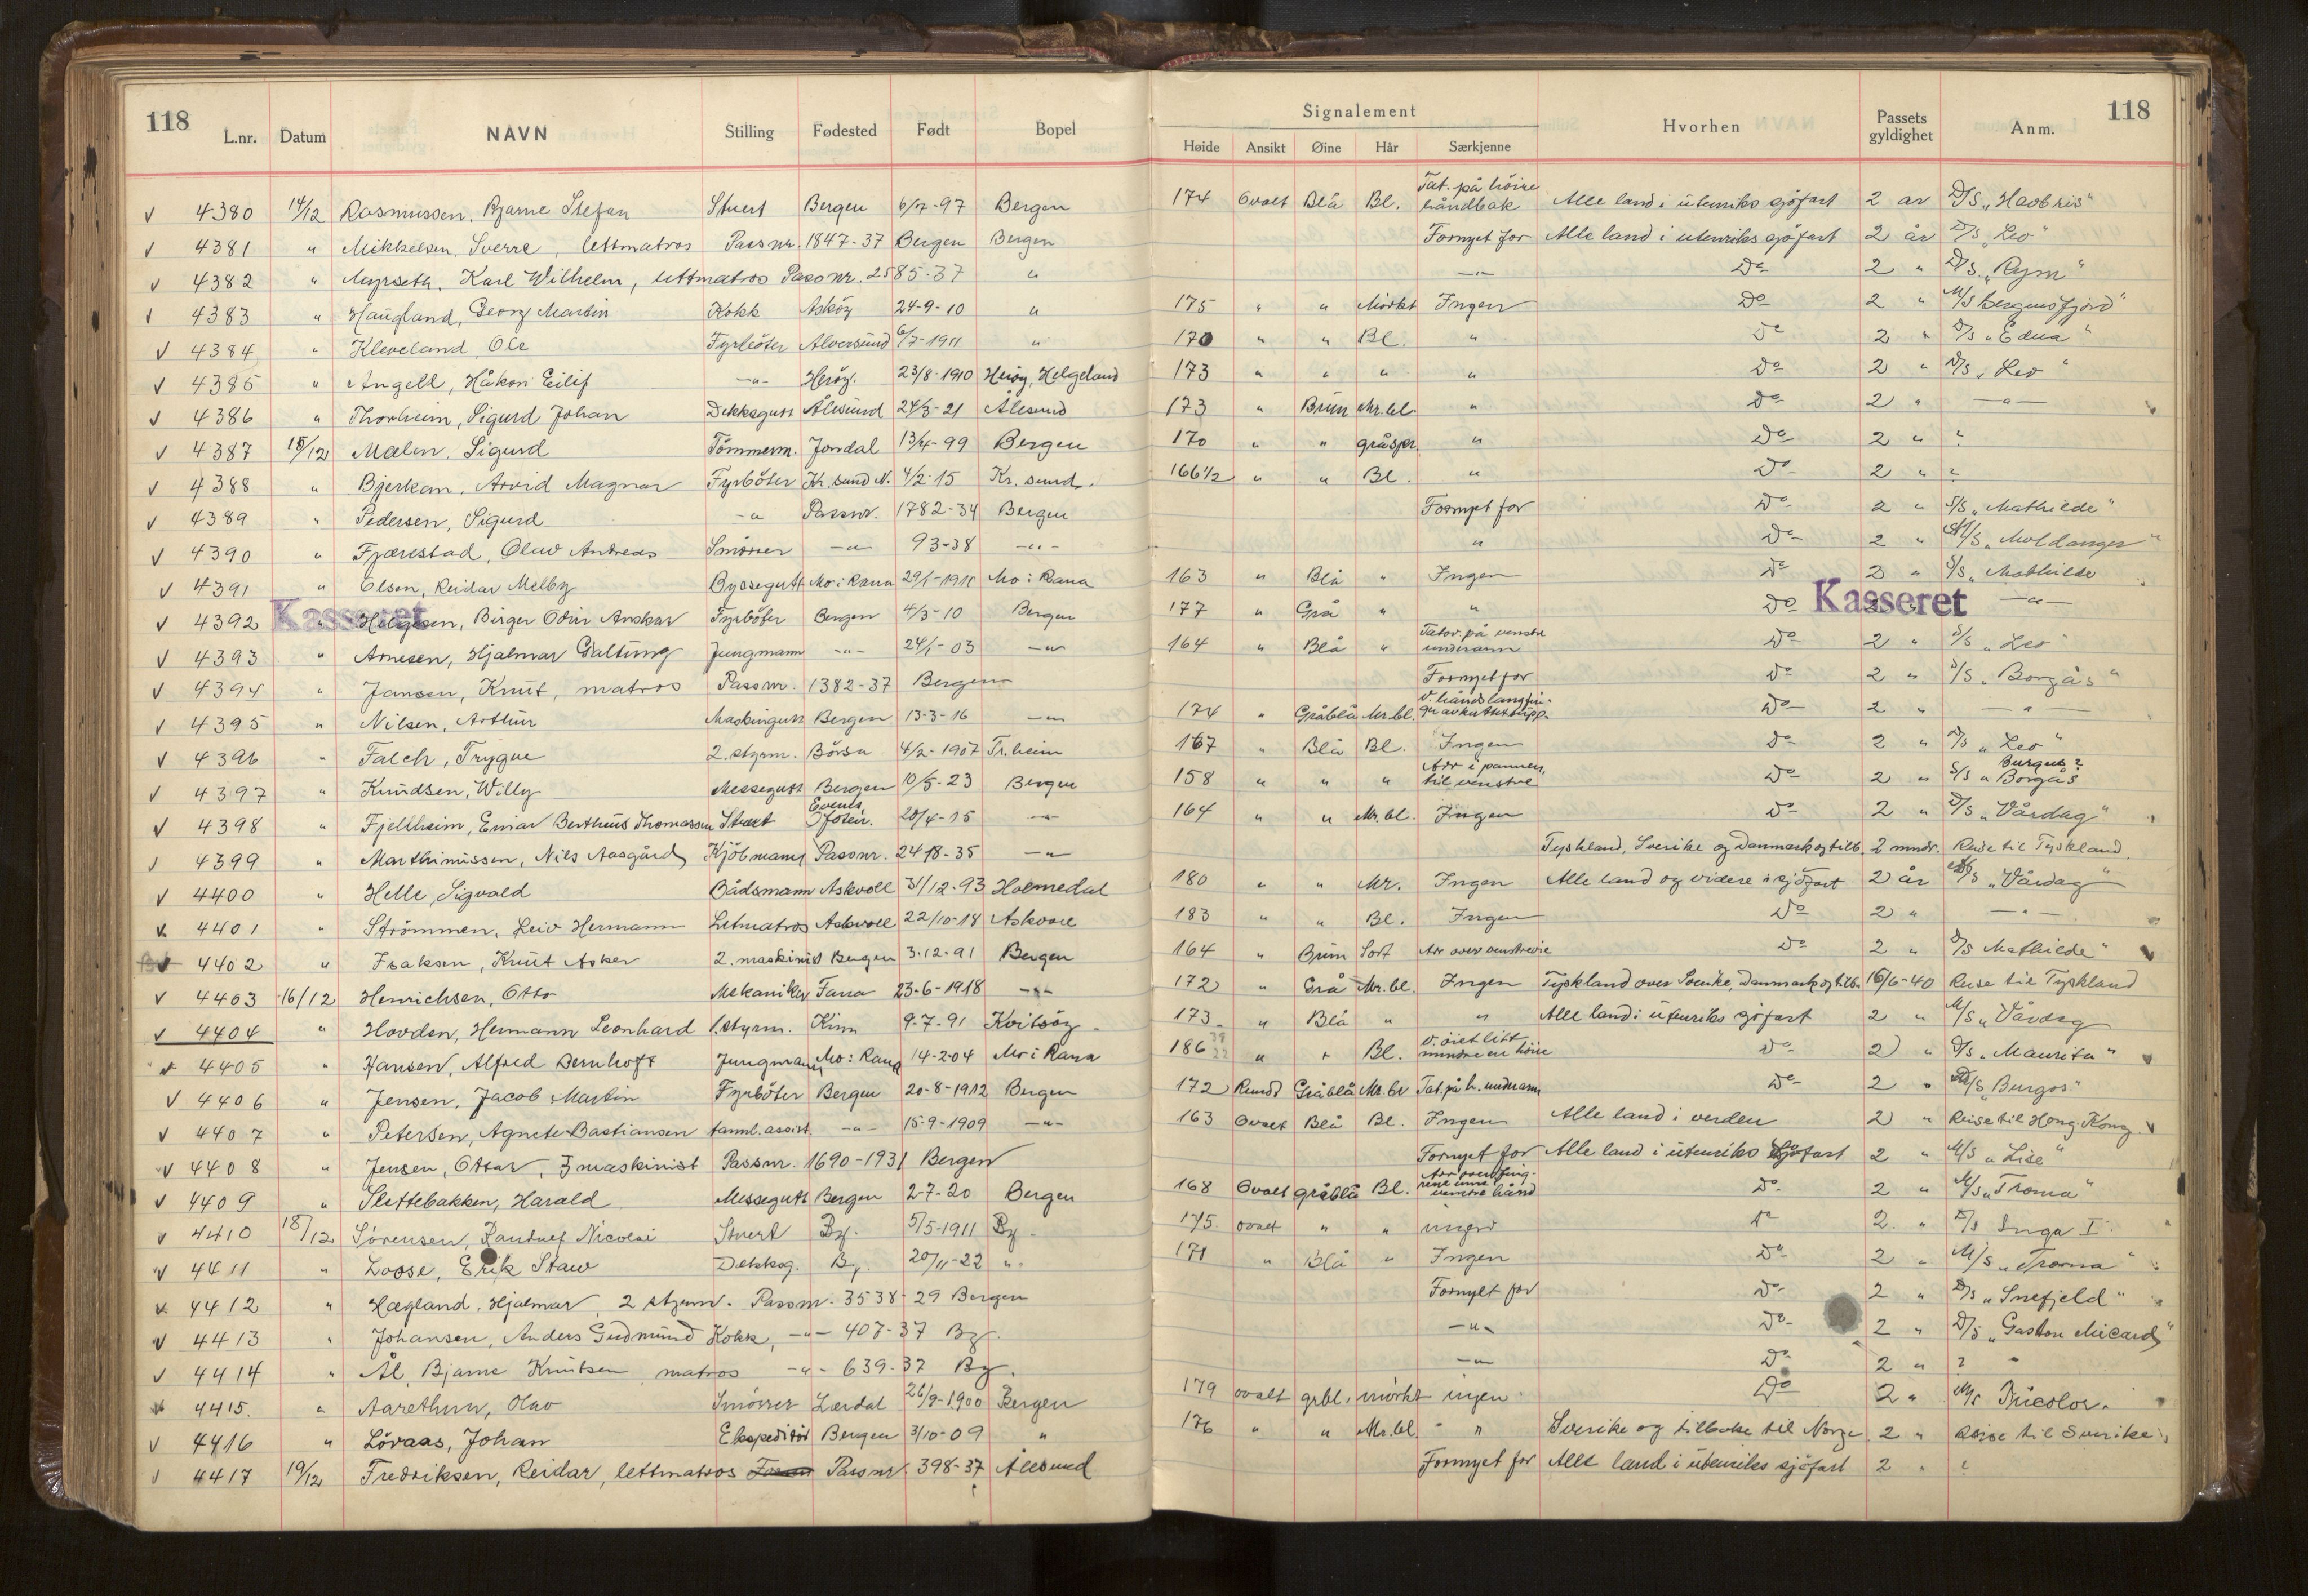 118
L.nr. Datum NAVN Stilling Fødested Født Bopel
Signalement
Høide Ansikt Øine Hår Særkjenne Hvorhen Passets gyldighet Anm.
118
4380 14/12 Rasmussen, Bjarne Stefan Stuert Bergen 6/7-97 Bergen 174 Ovalt Blå Bl. Tat. på höire håndbak Alle land i utenriks sjöfart 2 år D/S „Havbris"
4381 " Mikkelsen, Sverre, lettmatros Pass nr. 1847-37 Bergen Bergen Fornyet for Alle land i utenriks sjöfart 2 år D/S „Leo"
4382 " Myrseth, Karl Wilhelm, lettmatros Pass nr. 2585-37 " —"— Do 2 " D/S „Rym"
4383 " Haugland, Georg Martin Kokk Asköy 24-9-10 " 175 " " Mörkt Ingen Do 2 " M/S Bergensfjord"
4384 " Kleveland, Ole Fyrböter Alversund 6/7-1911 " 170 " " Bl. " Do 2 " D/S „Edna"
4385 " Angell, Håkon Eilif —"— Heröy. 23/8-1910 Heröy, Helgeland 173 " " " " Do 2 " D/S „Leo"
4386 " Thorheim, Sigurd Johan Dekksgutt Ålesund 24/3-21 Ålesund 173 " Brun Mr.bl. " Do 2 " —"—
4387 15/12 Mælen, Sigurd Tömmerm. Jondal 13/4-99 Bergen 170 " " gråspr. " Do 2 " ?
4388 " Bjerkan, Arvid Magnar Fyrböter Kr.sund N. 4/2-15 Kr. sund. 166 1/2 " " Bl. " Do 2 " ?
4389 " Pedersen, Sigurd —"— Passnr. 1782-34 Bergen Fornyet for Do 2 " S/S „Mathilde"
4390 " Fjærestad, Oluv Andreas Smörer —"— 93-38 —"— " Do 2 " M/S „Moldanger"
4391 " Olsen, Reidar Melby Byssegutt Mo i Rana 29/1-1918 Mo i Rana 163 " Blå " Ingen Do 2 " S/S „Mathilde
4392 Kasseret " Helgesen, Birger Odin Anskar Fyrböter Bergen 4/3-10 Bergen 177 " Grå " " Do Kasseret 2 " —"—
4393 " Arnesen, Hjalmar Galtung Jungmann —"— 24/1-03 —"— 164 " Blå " Tatov. på venstre underarm Do 2 " S/S „Leo"
4394 " Jansen, Knut, matros Pass nr. 1382-37 Bergen Fornyet for Do 2 " S/S „Borgås"
4395 " Nilsen, Arthur Maskingutt Bergen 13-3-16 —"— 174 " Gråblå Mr.bl. v. hånds langfinger avkuttet tupp. Do 2 " —"—
4396 " Falch, Trygve 2. styrm. Börsa 4/2-1907 Tr.heim 167 " Blå Bl. Ingen Do 2 " D/S „Leo"
4397 " Knudsen, Willy Messegutt Bergen 10/5-23 Bergen 158 " " " Arr i pannen, til venstre Do 2 " S/S „Borgås Burgus?
4398 " Fjellheim, Einar Berthius Thomassen Stuert Ofoten. 20/4-15 —"— 164 " " Mr.bl. Ingen Do 2 " D/S „Vårdag"
4399 " Marthinussen, Nils Aasgård Kjöbmann Passnr. 2418-35 —"— Tyskland, Sverike og Danmark og tilb. 2 mndr. Reise til Tyskland.
4400 " Helle, Sigvald Bådsmann Askvoll 31/12-93 Holmedal 180 " " Mr. Ingen Alle land og videre i sjöfart 2 år „Vårdag"
4401 " Strömmen, Leiv Hermann Letmatros Askvoll 22/10-18 Askvoll 183 " " Bl. Ingen Do 2 " —"—
4402 " Isaksen, Knut Asker 2. maskinist Bergen 3-12-91 Bergen 164 " Brun Sort Arr over venstre öie Do 2 " D/S Mathilde"
4403 16/12 Henrichsen, Otto Mekaniker Fana 23-6-1918 —"— 172 " Grå Mr.bl. Ingen Tyskland over Sverike, Danmark og tilb. 16/6-40 Reise til Tyskland
4404 " Hovden, Hermann Leonhard 1.styrm. Kinn 9-7-91 Kvitsöy 173 " Blå " " Alle land i utenriks sjöfart 2 " M/S „Vårdag
4405 " Hansen, Alfred Bernhoft Jungmann Mo i Rana 14-2-04 Mo i Rana 186 " " Bl. v. öiet litt mindre en höire Do 2 " D/S „Maurita"
4406 " Jensen, Jacob Martin Fyrböter Bergen 20-8-1912 Bergen 172 Rundt Gråblå Mr.bl Tat. på h. underarm Do 2 " „Burgos"
4407 " Petersen, Agnete Bastiansen tannl.assist. —"— 15-9-1909 —"— 163 Ovalt Blå Bl. Ingen Alle land i verden 2 " Reise til Hong-Kong.
4408 " Jensen, Ottar, 3 maskinist Passnr. 1690-1931 Bergen Fornyet for Alle land i utenriks sjöfart 2 " M/S „Lise"
4409 " Slettebakken, Harald Messegutt Bergen 2-7-20 Bergen 168 Ovalt gråblå Bl. venstre hånd Do 2 " M/S „Troma"
4410 18/12 Sörensen, Randulf Nicolai Stuert Bg. 5/5-1911 Bg. 175. ovalt " " ingen Do 2. " D/S Inga I.
4411 " Loose, Erik Staw Dekksg. Bg. 20/11-22 " 171 " Blå " Ingen Do 2 " M/S „Troma"
4412 " Hægland, Hjalmar 2 styrm. Passnr. 3538-29 Bergen Fornylt for Do 2 " D/S „Snefjeld"
4413 " Johansen, Anders Gudmund Kokk, —"— 407-37 Bg. —"— Do 2 " D/S „Gaston Micard"
4414 " Ål, Bjarne Knutsen matros —"— 639-37 Bg. —"— Do 2 " ? "
4415. " Aarethun, Olav Smörer Lærdal 26/8-1900 Bergen 179 ovalt grbl. mörkt ingen. Do 2 " M/S Tricolor.
4416 " Lövaas, Johan Ekspeditör Bergen 3/10-09 " 176 " " Mr.bl. " " Sverike og tilbake til Norge 2 " Reise til Sverike
4417 19/12 Fredriksen, Reidar, lettmatros Passnr. 398-37 Ålesund Fornyet for Alle land i utenriks sjöfart 2 " ?